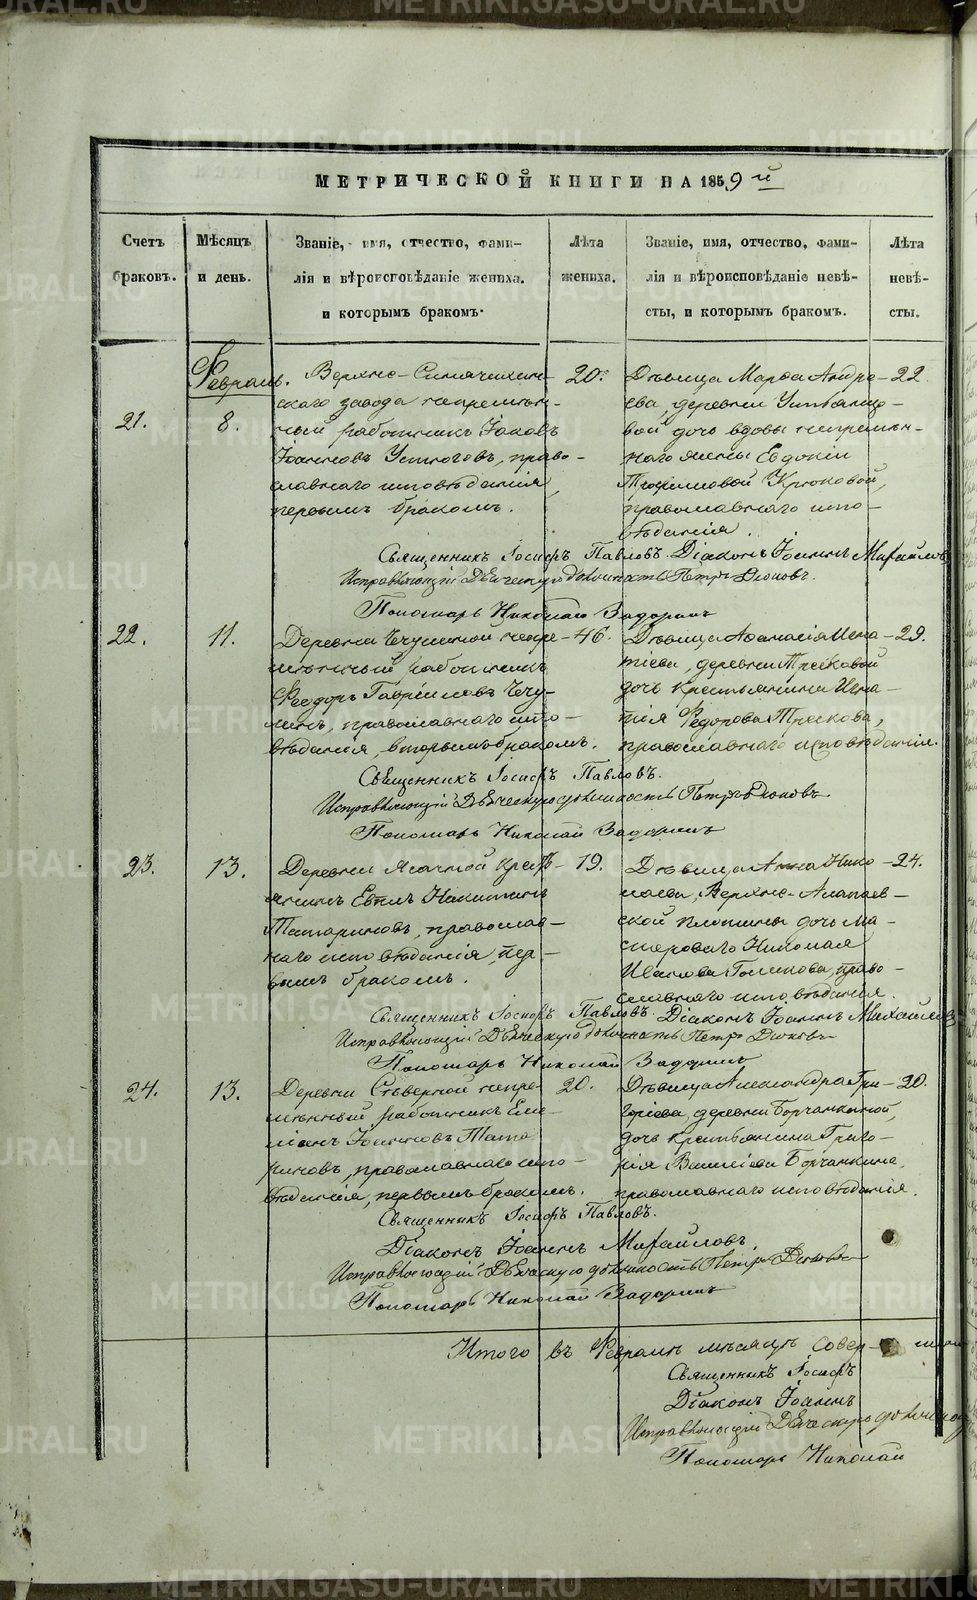 МЕТРИЧЕСКОЙ КНИГИ НА 1859й
Счетъ браковъ.
Мѣсяцъ и день.
Званіе, имя, отчество, фами-
лія и вѣроисповѣданіе жениха.
и которымъ бракомъ.
Лѣта жениха.
Званіе, имя, отчество, фами-
лія и вѣроисповѣданіе невѣ-
сты, и которымъ бракомъ.
Лѣта невѣ-
сты.
Февраль.
21.
8.
Верхне-Синячихин-
скаго завода непремѣн-
ный работникъ Іаковъ
Іоанновъ Устюговъ, право-
славнаго исповѣданія,
первымъ бракомъ.
20.
Дѣвица Марѳа Андре-
ева, деревни
вой дочь вдовы непремѣн-
наго жены Евдокіи
Трофимовой Крюковой,
православнаго испо-
вѣданія.
22
Священникъ Іосифъ Павловъ. Діаконъ Іоаннъ Михайловъ
Исправляющій Дьяческую должность Петръ
Пономарь Николай Задоринъ
22.
11.
Деревни Чечулиной непре-
мѣнный работникъ
Феодоръ Гавріиловъ Чечу-
линъ, православнаго испо-
вѣданія, вторымъ бракомъ.
46.
Дѣвица Аѳанасія Игна-
тіева, деревни
дочь крестьянина Игна-
тія Федорова
православнаго исповѣданія.
29.
Священникъ Іосифъ Павловъ.
Исправляющій Дьяческую должность Петръ
Пономарь Николай Задоринъ
23.
13.
Деревни Ясачной кресть-
янинъ Евѳилъ Никитинъ
Татариновъ, православ-
наго исповѣданія, пер-
вымъ бракомъ.
19.
Дѣвица Анна Нико-
лаева, Верхне-Алапаев-
ской плотины дочь ма-
стероваго Николая
Иванова Голикова, право-
славнаго исповѣданія.
24.
Священникъ Іосифъ Павловъ. Діаконъ Іоаннъ Михайловъ
Исправляющій Дьяческую должность Петръ
Пономарь Николай Задоринъ
24.
13.
Деревни Сѣверной непре-
мѣнный работникъ Еми-
ліанъ Іоанновъ Тата-
риновъ, православнаго испо-
вѣданія, первымъ бракомъ.
20.
Дѣвица Александра Гри-
горіева, деревни Борчанкиной,
дочь крестьянина Григо-
рія Василіева Борчанкина,
православнаго исповѣданія.
20.
Священникъ Іосифъ Павловъ.
Діаконъ Іоаннъ Михайловъ
Исправляющій Дьяческую должность Петръ
Пономарь Николай Задоринъ
Итого въ Февралѣ мѣсяцѣ совер-
Священникъ Іосифъ
Діаконъ Іоаннъ
Исправляющій Дьяческую
Пономарь Николай
METRIKI.GASO-URAL.RU